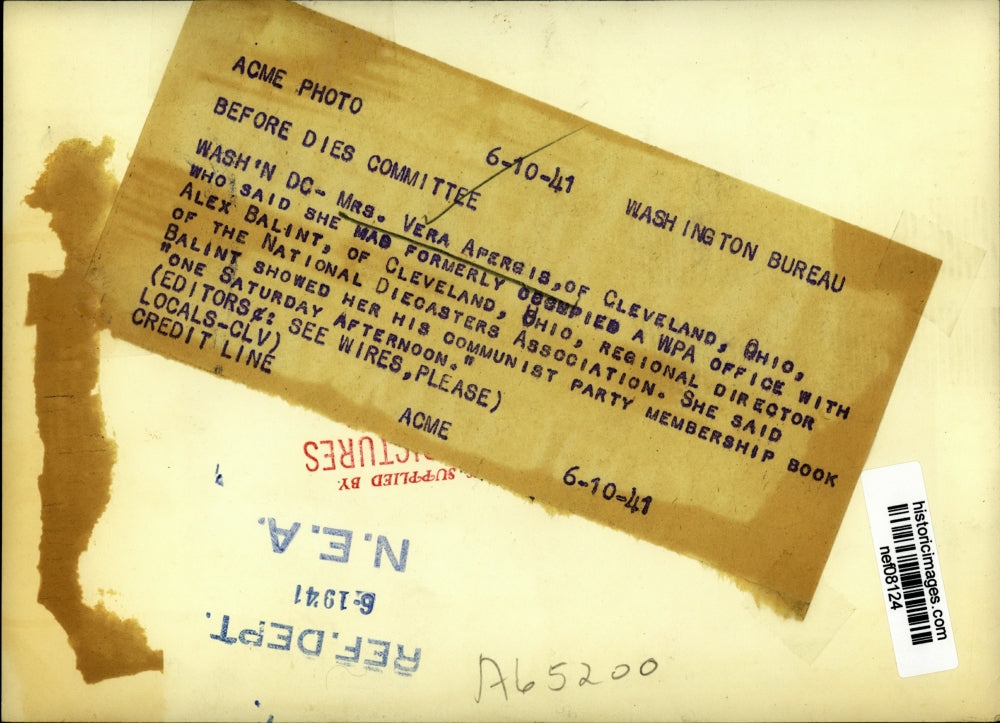 ACME PHOTO
6-10-41
WASHINGTON BUREAU
BEFORE DIES COMMITTEE
WASH'N DC- MRS. VERA APERGIS, OF CLEVELAND, OHIO,
WHO SAID SHE HAD FORMERLY OCCUPIED A WPA OFFICE WITH
ALEX BALINT, OF CLEVELAND, OHIO, REGIONAL DIRECTOR
OF THE NATIONAL DIECASTERS ASSOCIATION. SHE SAID
BALINT SHOWED HER HIS COMMUNIST PARTY MEMBERSHIP BOOK
"ONE SATURDAY AFTERNOON."
(EDITORS: SEE WIRES, PLEASE)
LOCALS-CLV)
CREDIT LINE
ACME
6-10-41
SUPPLIED BY
N.E.A.
1941
REF. DEPT.
A65200
historicimages.com
nef08124